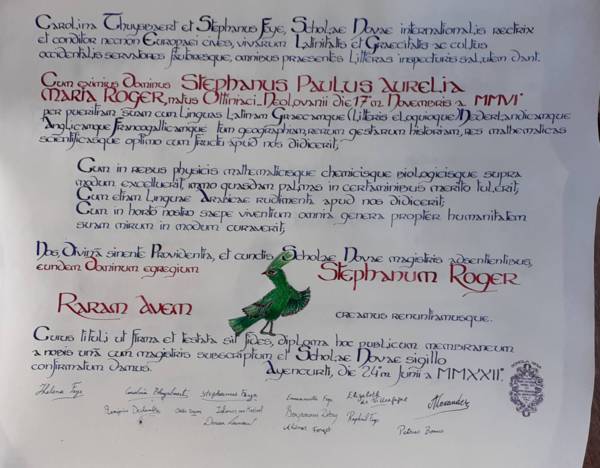 Carolina Thuysbaert et Stephanus Feye, Scholae Novae internationalis rectrix
et conditor necnon Europaei cives, vivarum Latinitatis et Graecitatis ac cultus
occidentalis servatores fautoresque, omnibus praesentes Litteras inspecturis salutem dant.
Cum eximius dominus STEPHANUS PAULUS AURELIA
MARIA ROGER, natus Ottinaci - Neolovanii die 17ª m. Novembris a. MMVI
per pueritiam suam cum Linguas Latinam Graecamque (Litteris eloquioque) Nederlandicamque
Anglicamque Francogallicamque tum geographiam, rerum gestarum historiam, res mathematicas
scientificasque optimo cum fructu apud nos didicerit,
Cum in rebus physicis mathematicisque chemicisque biologicisque supra
modum excelluerit, immo quasdam palmas in certaminibus merito tulerit,
Cum etiam Linguae Arabicae rudimenta apud nos didicerit;
Cum in horto nostro saepe viventium omnia genera propter humanitatem
suam mirum in modum curaverit,
Nos, Divinâ sinente Providentia, et cunctis Scholae Novae magistris adsentientibus,
eundem Dominum egregium Stephanum Roger
Raram Avem creamus renuntiamusque.
Cuius tituli ut firma et testata sit fides, diploma hoc publicum membraneum
a nobis unâ cum magistris subscriptum et Scholae Novae sigillo
confirmatum damus. Ayencurti, die 24ª m. Junii a MMXXII°.
Stephanus Feye
Emmanuelle Feye
Elizabeth
Raphael Feye
Petrus